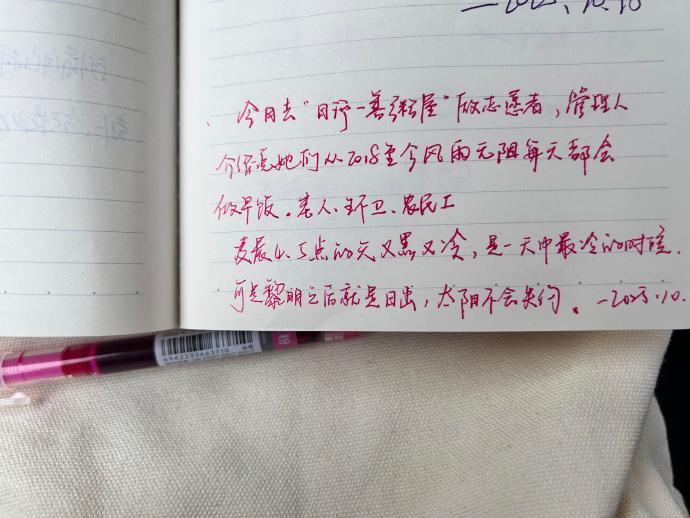 今日去“日行一善粥屋”做志愿者，管理人
介绍说她们从2018至今风雨无阻每天都会
做早饭。老人、环卫、农民工
最4、5点的天又黑又冷，是一天中最冷的时候.
可是黎明之后就是日出，太阳不会失约。—2025.10.
6942233663710